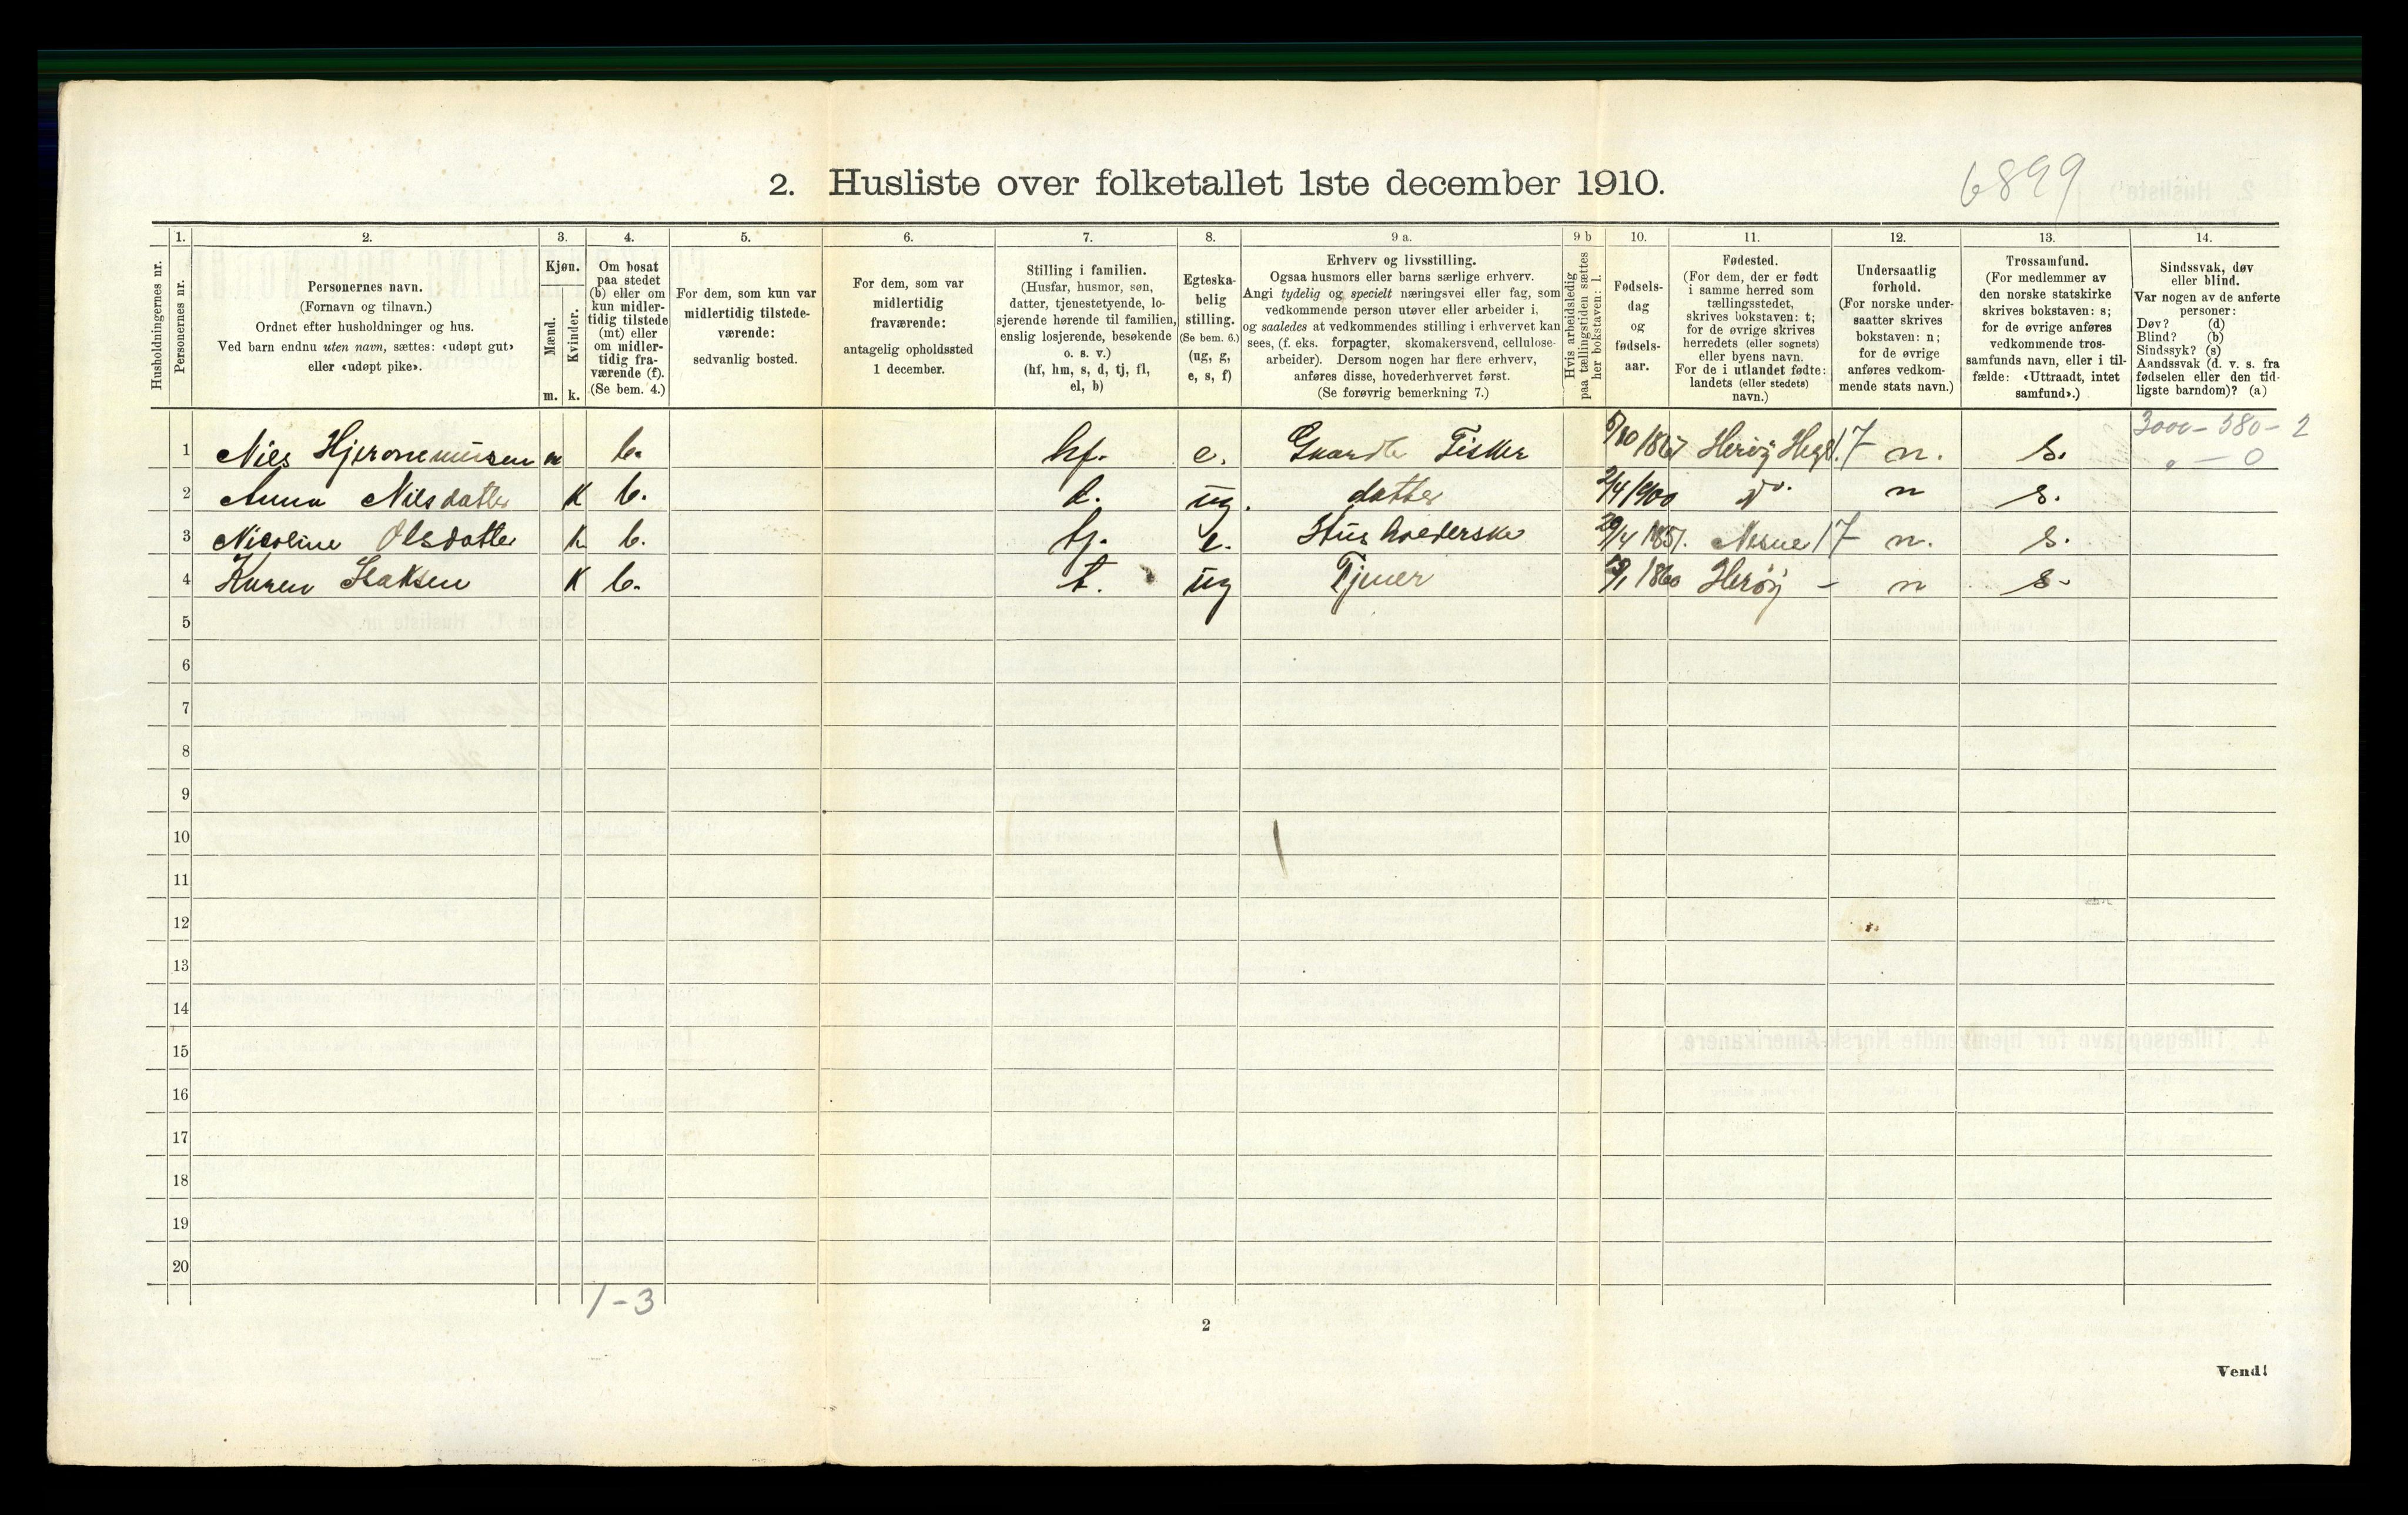 2. Husliste over folketallet 1ste december 1910.
6899
Husholdningernes nr.
1.
Personernes nr.
2.
Personernes navn.
(Fornavn og tilnavn.)
Ordnet efter husholdninger og hus.
Ved barn endnu uten navn, sættes: «udøpt gut»
eller «udøpt pike».
3.
Kjøn.
Mænd.
Kvinder.
m. k.
4.
Om bosat
paa stedet
(b) eller om
kun midler-
tidig tilstede
(mt) eller
om midler-
tidig fra-
værende (f).
(Se bem. 4.)
5.
For dem, som kun var
midlertidig tilstede-
værende:
sedvanlig bosted.
6.
For dem, som var
midlertidig
fraværende:
antagelig opholdssted
1 december.
7.
Stilling i familien.
(Husfar, husmor, søn,
datter, tjenestetyende, lo-
sjerende hørende til familien,
enslig losjerende, besøkende
o. s. v.)
(hf, hm, s, d, tj, fl,
el, b)
8.
Egteska-
belig
stilling.
(Se bem. 6.)
(ug, g,
e, s, f)
9 a.
Erhverv og livsstilling.
Ogsaa husmors eller barns særlige erhverv.
Angi tydelig og specielt næringsvei eller fag, som
vedkommende person utøver eller arbeider i,
og saaledes at vedkommendes stilling i erhvervet kan
sees, (f. eks. forpagter, skomakersvend, cellulose-
arbeider). Dersom nogen har flere erhverv,
anføres disse, hovederhvervet først.
(Se forøvrig bemerkning 7.)
9 b
Hvis arbeidsledig
paa tællingstiden sættes
her bokstaven: l.
10.
Fødsels-
dag
og
fødsels-
aar.
11.
Fødested.
(For dem, der er født
i samme herred som
tællingsstedet,
skrives bokstaven: t;
for de øvrige skrives
herredets (eller sognets)
eller byens navn.
For de i utlandet fødte:
landets (eller stedets)
navn.)
12.
Undersaatlig
forhold.
(For norske under-
saatter skrives
bokstaven: n;
for de øvrige
anføres vedkom-
mende stats navn.)
13.
Trossamfund.
(For medlemmer av
den norske statskirke
skrives bokstaven: s;
for de øvrige anføres
vedkommende tros-
samfunds navn, eller i til-
fælde: «Uttraadt, intet
samfund».)
14.
Sindssvak, døv
eller blind.
Var nogen av de anførte
personer:
Døv? (d)
Blind? (b)
Sindssyk? (s)
Aandssvak (d. v. s. fra
fødselen eller den tid-
ligste barndom)? (a)
3000 - 580 - 2
1 Nils Hjeronemussen m b. hf. e. Fisker Herøy 17 n. s. „ - 0
2 Anna Nilsdatter K b. d. ug. datter 2/4 1900 do. n s.
3 Nicoline Olsdatter K b. tj. e. Husholderske 29/4 1851. Nesne 17 n. s.
4 Karen Isaksen K b. t. ug Tjener 1860 Herøy - n s.
5
6
7
8
9
10
11
12
13
14
15
16
17
18
19
20
1-3
2
Vend!